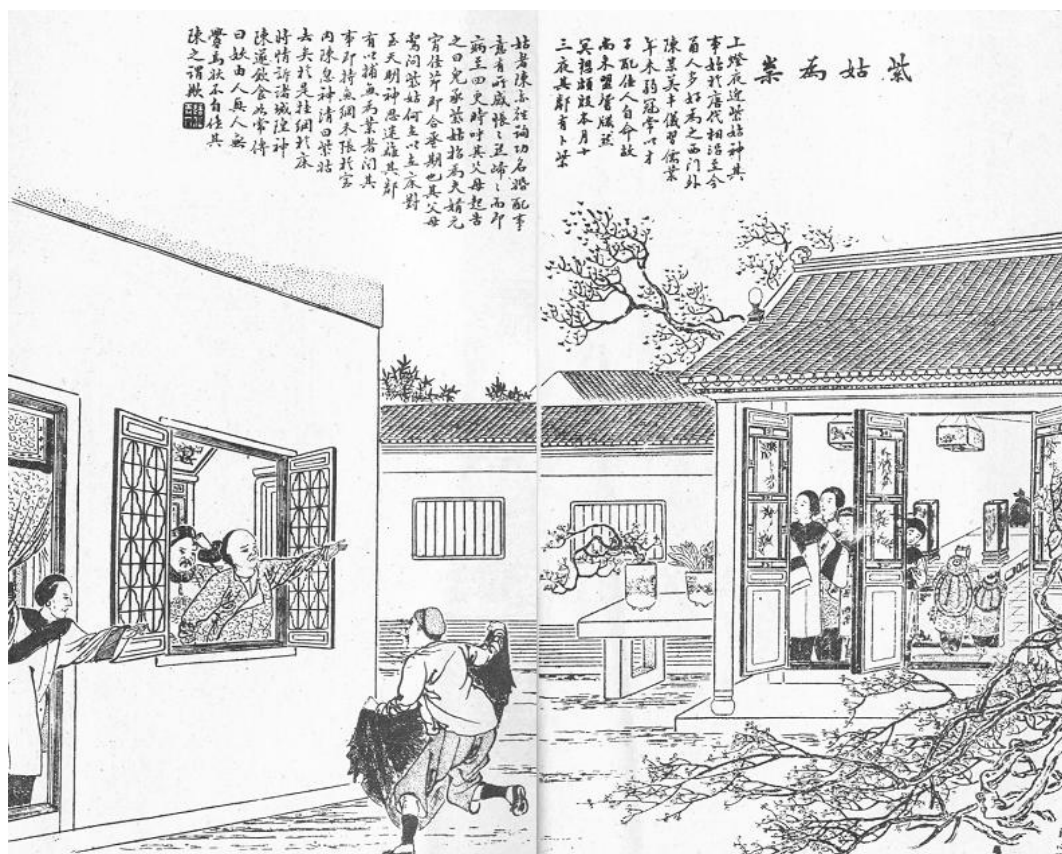 紫姑為祟
上燈夜迎紫姑神其
事始於唐代相沿至今
甬人多好為之西門外
陳某美丰儀習儒業
年未弱冠常以才
子配佳人自命故
尚未盟
冥想頗殷本月十
三夜其鄰有卜紫
姑者陳亦往詢功名婚配事
意有所感悵〻然歸〻而即
病至四更時呼其父母起告
之曰兒承紫姑招為夫婿元
宵佳節即合巹期也其父母
驚問紫姑何在以立床對
至天明神思迷離其鄰
有以捕魚為業者聞其
事即持魚網来張於室
內陳忽神清曰紫姑
去矣於是挂網於床
將情訴諸城隍神
陳遂飲食如常傳
曰妖由人興人無
釁焉妖不自作其
陳之謂歟